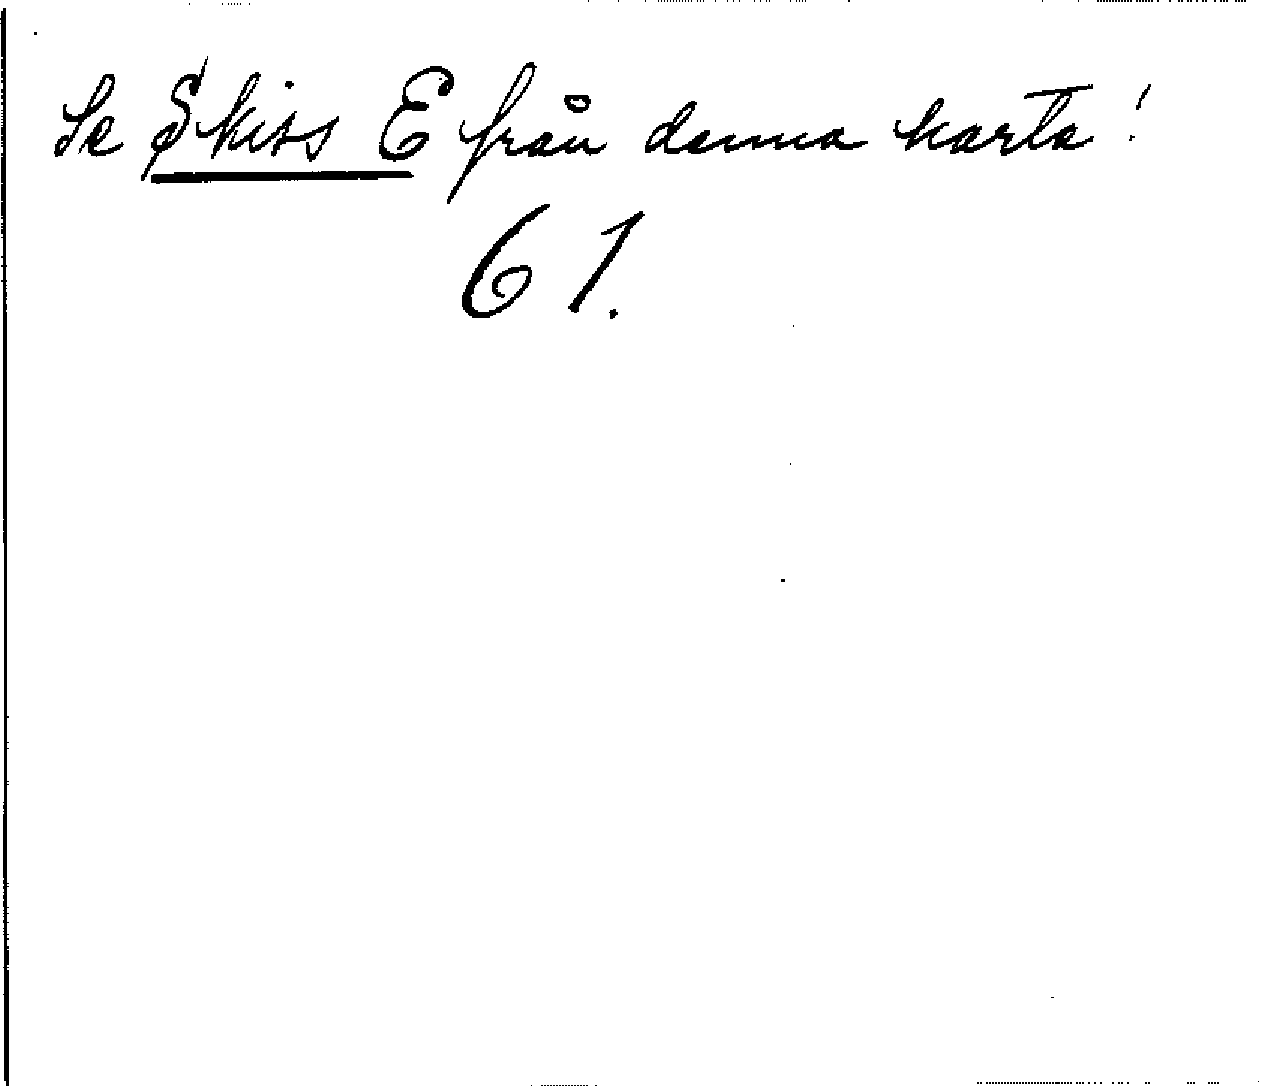 Se Skiss E från denna karta!
61.